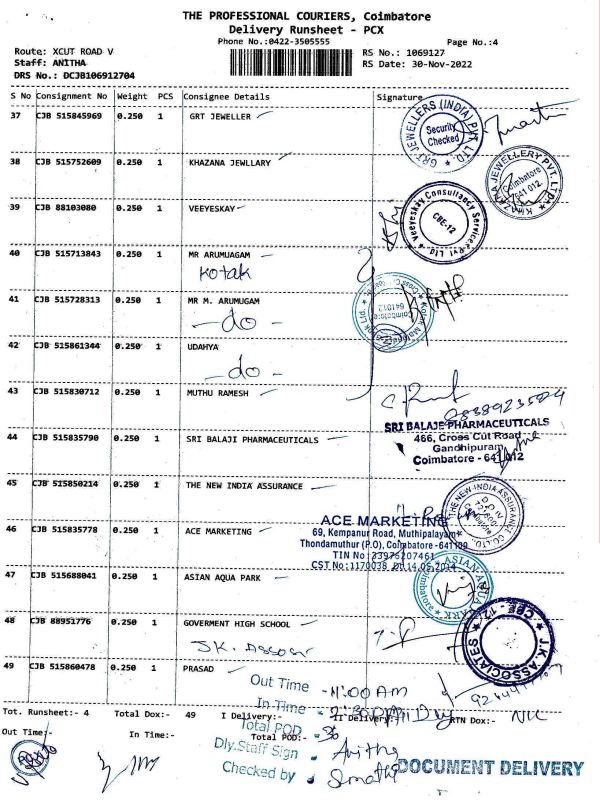 THE PROFESSIONAL COURIERS, Coimbatore
Delivery Runsheet - PCX
Phone No.:0422-3505555 Page No.:4
Route: XCUT ROAD V RS No.: 1069127
Staff: ANITHA RS Date: 30-Nov-2022
DRS No.: DCJB106912704
S No Consignment No Weight PCS Consignee Details Signature
37 CJB 515845969 0.250 1 GRT JEWELLER
GRT JEWELLERS (INDIA) PVT. LTD.
Security Checked
38 CJB 515752609 0.250 1 KHAZANA JEWLLARY
KHAZANA JEWELLERY PVT. LTD.
Coimbatore 641 012
39 CJB 88103080 0.250 1 VEEYESKAY
Veeyeskay Consultancy Services Pvt Ltd
CBE-12
40 CJB 515713843 0.250 1 MR ARUMUAGAM
Kotak
41 CJB 515728313 0.250 1 MR M. ARUMUGAM
Coimbatore 641012
- do -
42 CJB 515861344 0.250 1 UDAHYA
- do -
43 CJB 515830712 0.250 1 MUTHU RAMESH
SRI BALAJE PHARMACEUTICALS
44 CJB 515835790 0.250 1 SRI BALAJI PHARMACEUTICALS
466, Cross Cut Road
Gandhipuram,
Coimbatore - 641 012
45 CJB 515850214 0.250 1 THE NEW INDIA ASSURANCE
THE NEW INDIA ASSURANCE CO. LTD.
46 CJB 515835778 0.250 1 ACE MARKETING
ACE MARKETING
69, Kempanur Road, Muthipalayam
Thondamuthur (P.O), Coimbatore -641109
TIN No: 33976207461
CST No: 1170038
47 CJB 515688041 0.250 1 ASIAN AQUA PARK
48 CJB 88951776 0.250 1 GOVERMENT HIGH SCHOOL
J.K. ASSOCIATES
CBE - 12
49 CJB 515860478 0.250 1 PRASAD
Out Time - 11:00 AM
In Time -
Tot. Runsheet:- 4 Total Dox:- 49 I Delivery:- II Delivery:- RTN Dox:- Nil
Out Time:- In Time:- Total POD:-
Total POD - 36
Dly.Staff Sign - Anitha
Checked by -
DOCUMENT DELIVERY